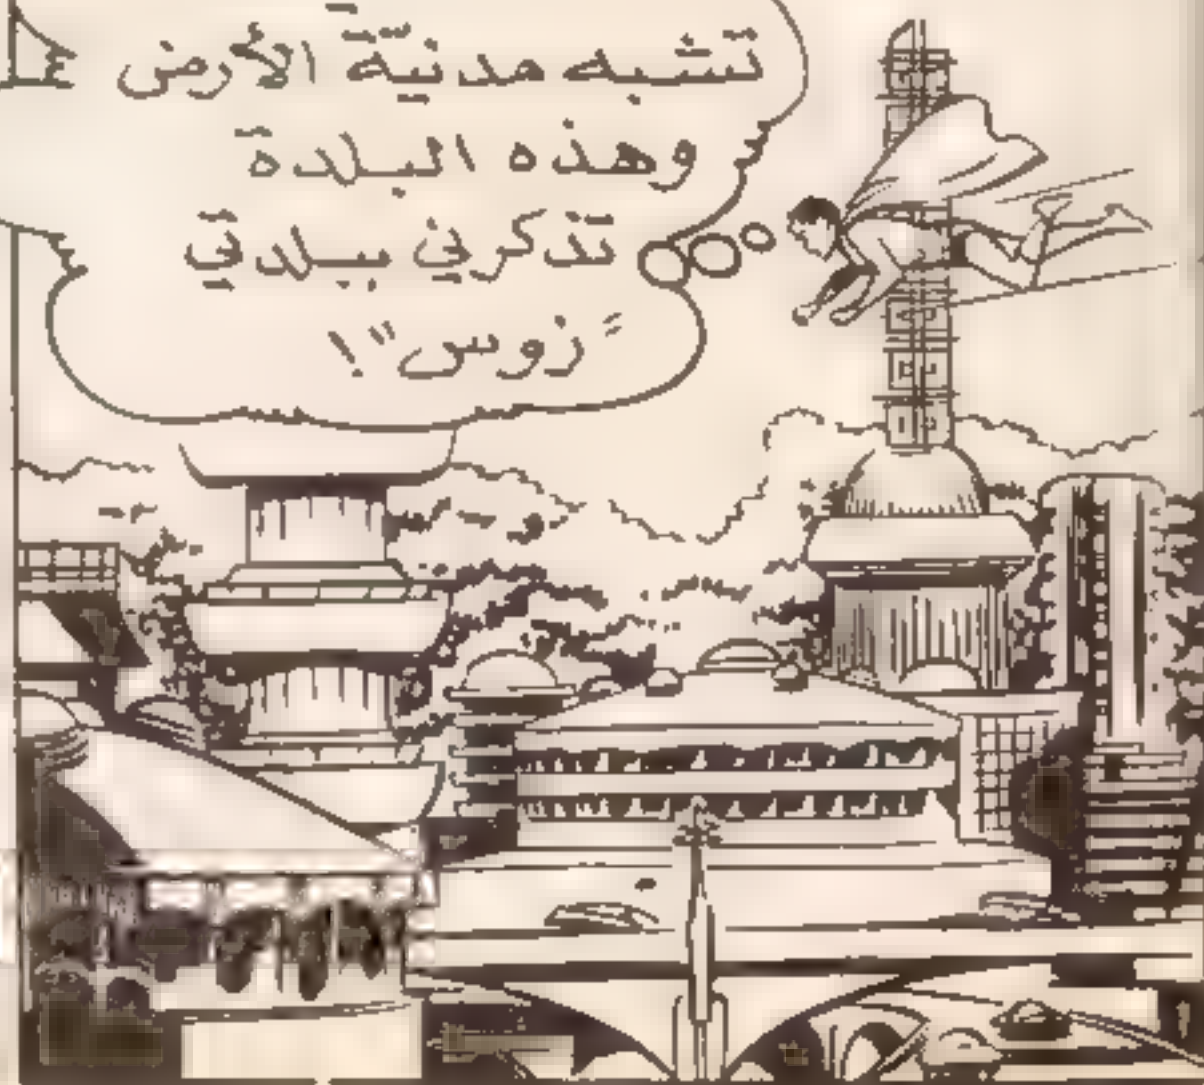 تشبه مدنيّة الأرض
وهذه البلدة
تذكرني ببلدتي
"زوس"!